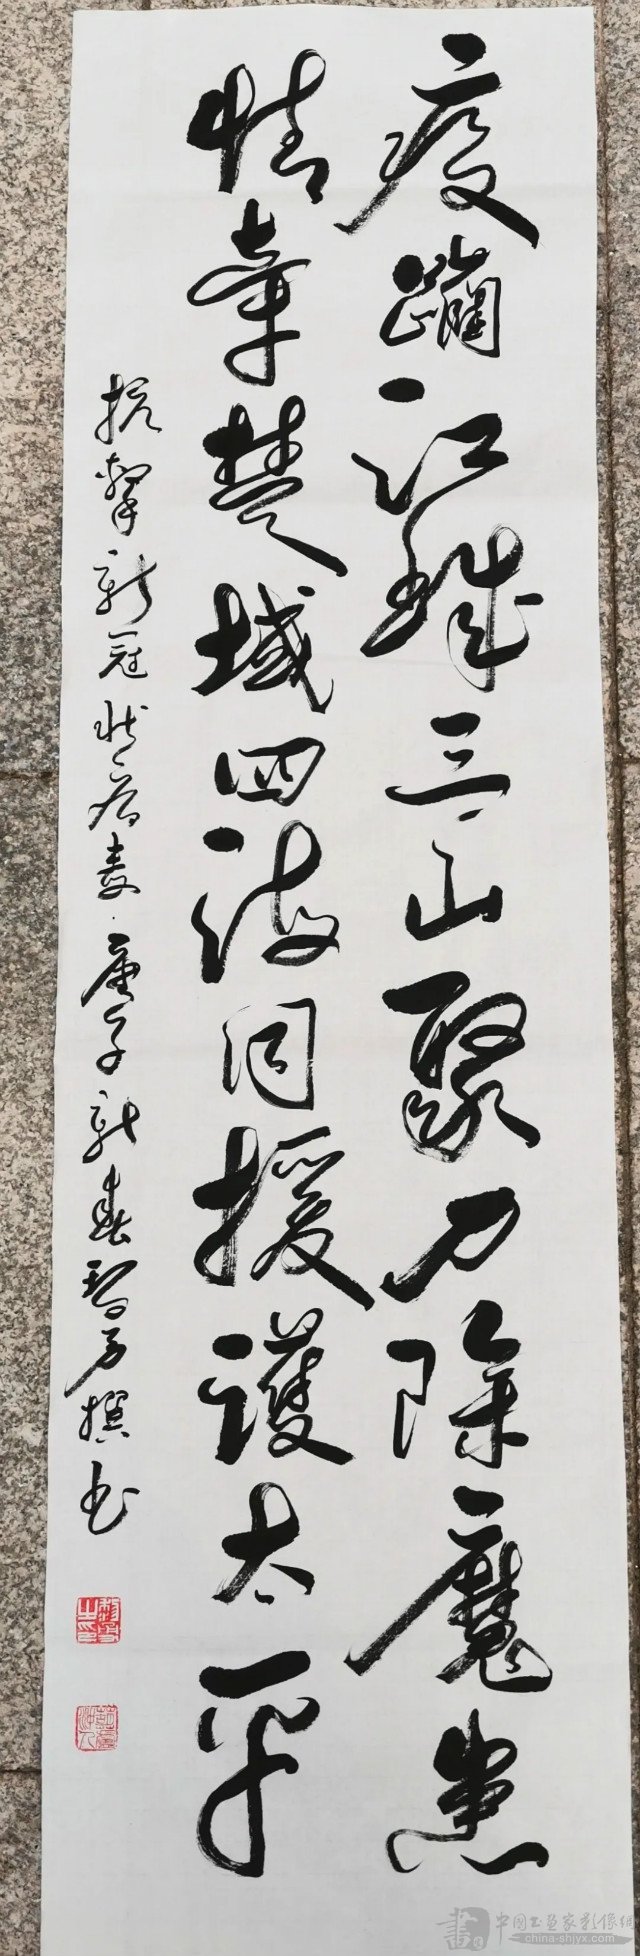 疫蹦江城三山聚力除魔患
情牵楚域四海同援护太平
抗击新冠状病毒庚子新春智方撰书
中国书画家影像网
china-shjyx.com